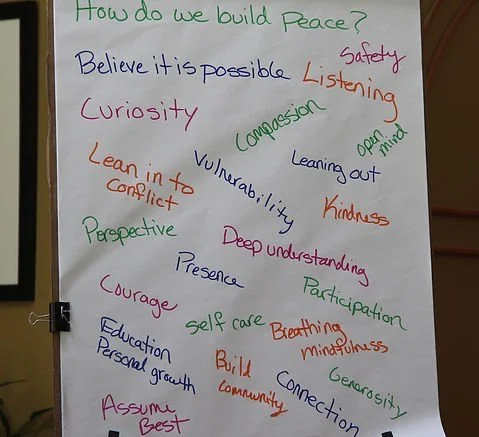 How do we build Peace?
Safety
Believe it is possible
Listening
Curiosity
Compassion
open
mind
Lean in to
conflict
Vulnerability
Leaning out
Kindness
Perspective
Deep understanding
Presence
Courage
Participation
self care
Breathing
mindfulness
Education
Personal growth
Build
community
Connection
Generosity
Assume
Best